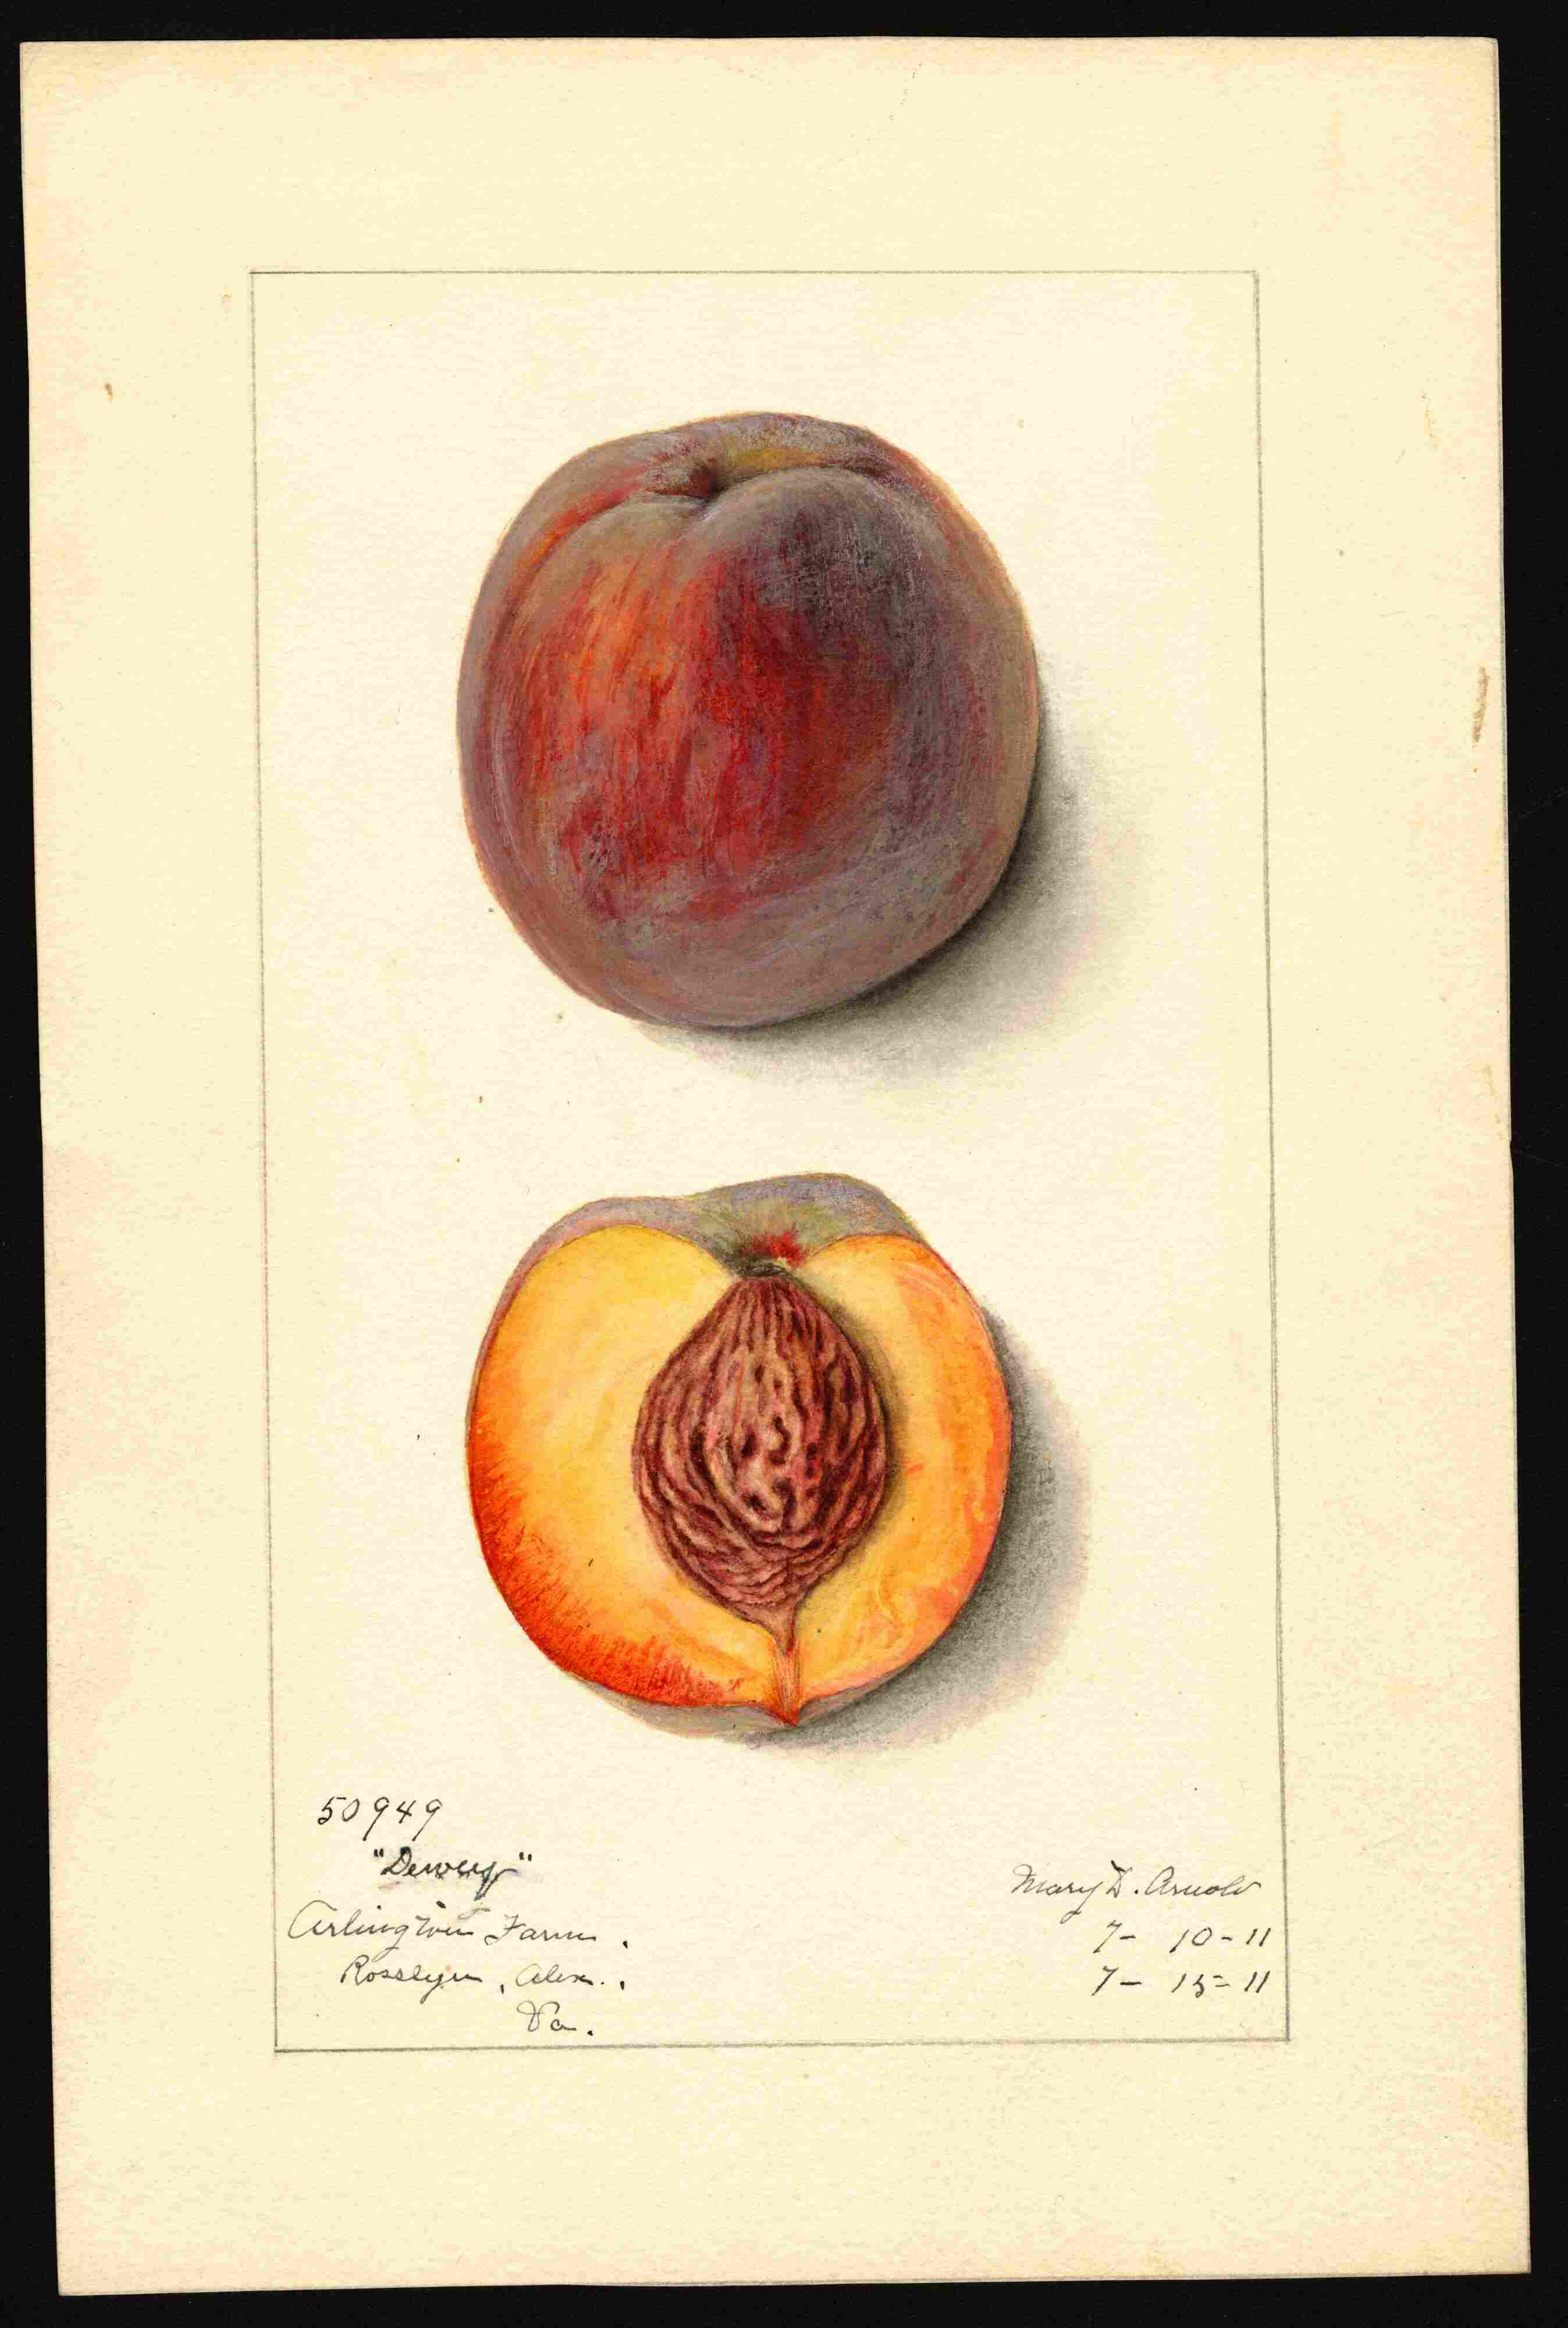 50949
"Dewey"
Arlington Farm.
Rosslyn, Alex.,
Va.
Mary D. Arnold
7- 10-11
7- 15-11